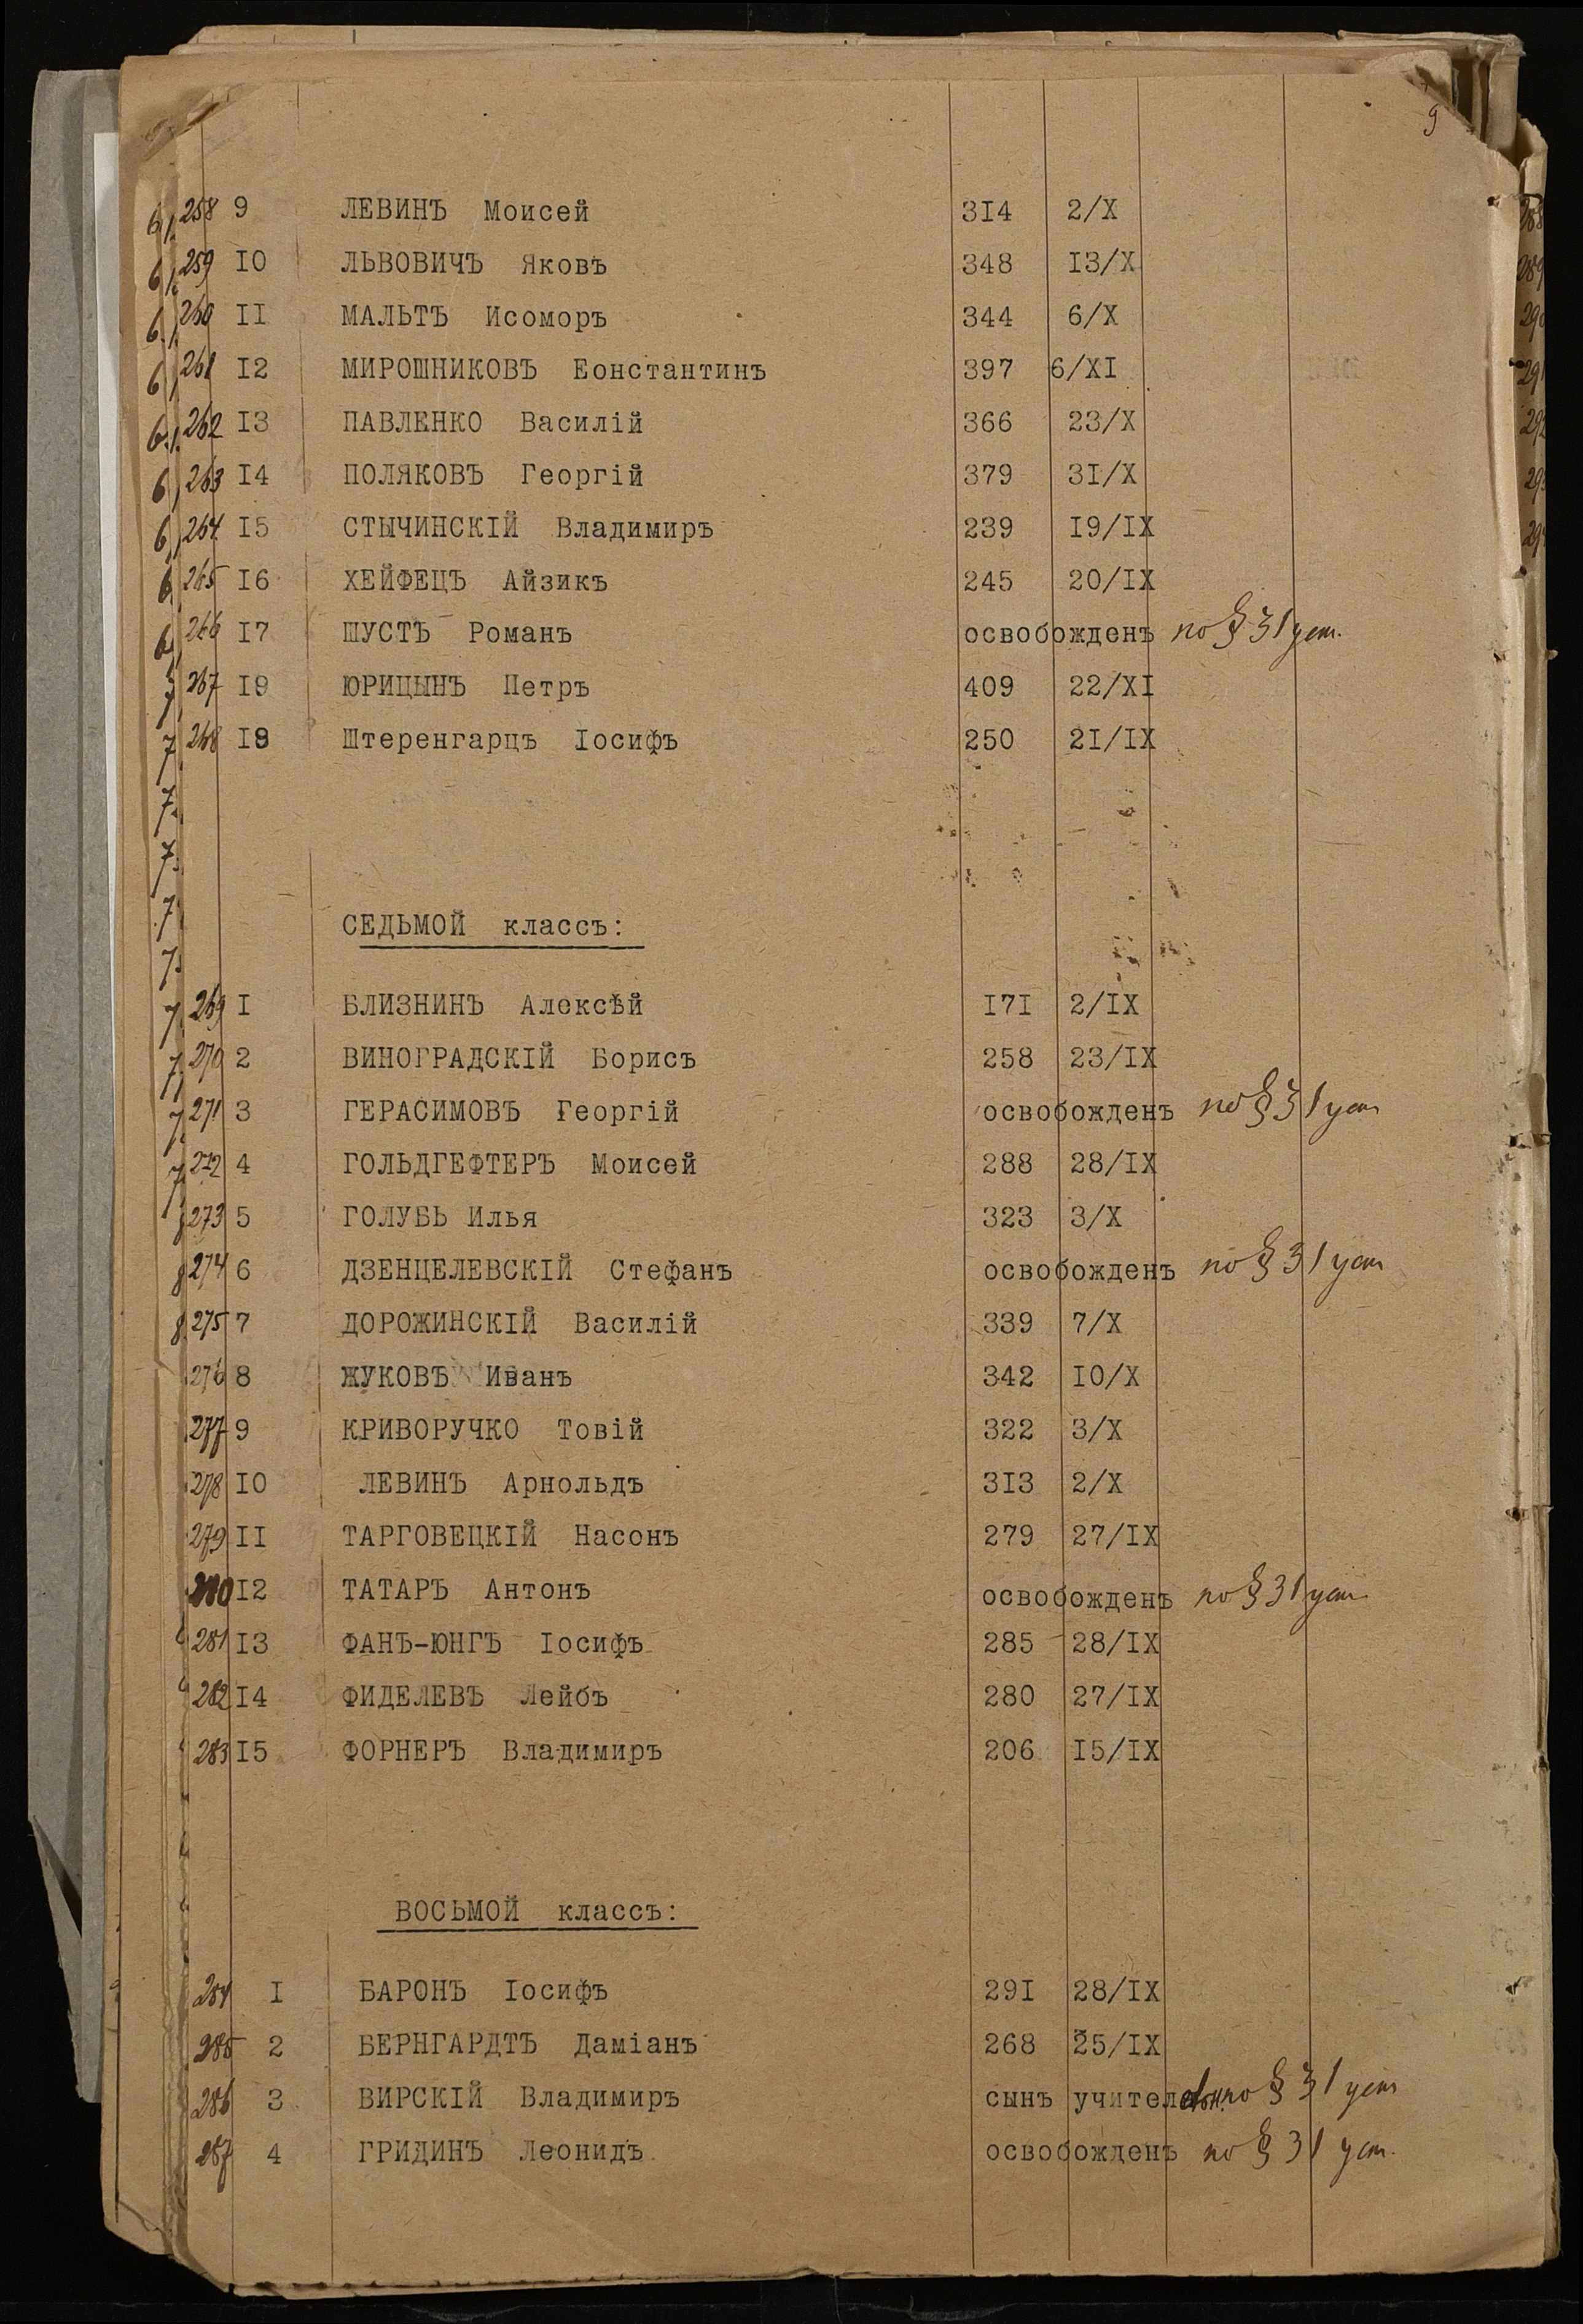 9
258 9 ЛЕВИНЪ Моисей 3I4 2/X
259 IO ЛЬВОВИЧЪ Яковъ 348 I3/X
260 II МАЛЬТЪ Исоморъ 344 6/X
261 I2 МИРОШНИКОВЪ Еонстантинъ 397 6/XI
262 I3 ПАВЛЕНКО Василій 366 23/X
263 I4 ПОЛЯКОВЪ Георгій 379 3I/X
264 I5 СТЫЧИНСКІЙ Владимиръ 239 I9/IX
265 I6 ХЕЙФЕЦЪ Айзикъ 245 20/IX
266 I7 ШУСТЪ Романъ освобожденъ по § 31 уст.
267 I9 ЮРИЦЫНЪ Петръ 409 22/XI
268 I9 Штеренгарцъ Іосифъ 250 2I/IX
СЕДЬМОЙ классъ:
269 I БЛИЗНИНЪ Алексѣй I7I 2/IX
270 2 ВИНОГРАДСКІЙ Борисъ 258 23/IX
271 3 ГЕРАСИМОВЪ Георгій освобожденъ по § 31 уст
272 4 ГОЛЬДГЕФТЕРЪ Моисей 288 28/IX
273 5 ГОЛУБЬ Илья 323 3/X
274 6 ДЗЕНЦЕЛЕВСКІЙ Стефанъ освобожденъ по § 31 уст
275 7 ДОРОЖИНСКІЙ Василій 339 7/X
276 8 ЖУКОВЪ Иванъ 342 IO/X
277 9 КРИВОРУЧКО Товій 322 3/X
278 IO ЛЕВИНЪ Арнольдъ 3I3 2/X
279 II ТАРГОВЕЦКІЙ Насонъ 279 27/IX
280 I2 ТАТАРЪ Антонъ освобожденъ по § 31 уст
281 I3 ФАНЪ-ЮНГЪ Іосифъ 285 28/IX
282 I4 ФИДЕЛЕВЪ Лейбъ 280 27/IX
283 I5 ФОРНЕРЪ Владимиръ 206 I5/IX
ВОСЬМОЙ классъ:
284 I БАРОНЪ Іосифъ 29I 28/IX
285 2 БЕРНГАРДТЪ Даміанъ 268 25/IX
286 3 ВИРСКІЙ Владимиръ сынъ по § 31 уст
287 4 ГРИДИНЪ Леонидъ освобожденъ по § 31 уст.